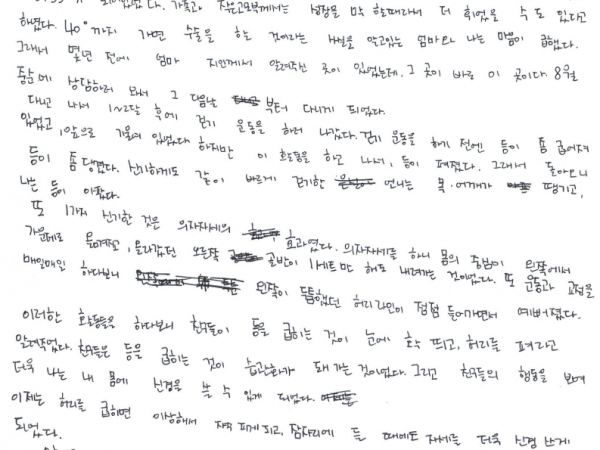 되었었다. 가족과 작은고모부께서는 성장을 막 할때라서 더 휘었을 수도 있다고
하였다. 40°까지 가면 수술을 할 것이라는 사실을 알고있는 엄마와 나는 마음이 급했다.
그래서 몇년 전에 엄마 지인께서 알려주신 곳이 있었는데, 그 곳이 바로 이 곳이다. 8월
중순에 상담하러 와서 그 다음날 부터 다니게 되었다.
다니고 나서 1~2달 후에 걷기 운동을 하러 나갔다. 걷기 운동을 하기 전엔 등이 좀 굽어져
있었고, 앞으로 기울여 있었다. 하지만 이 운동을 하고 나서, 등이 펴졌다. 그래서 돌아오니
등이 좀 당겼다. 신기하게도 같이 바르게 걷기한 언니는 목·어깨가 땡기고,
나는 등이 아팠다.
또 1가지 신기한 것은 의자자세의 효과였다. 의자자세를 하니 몸의 중심이 왼쪽에서
가운데로 옮겨졌고, 올라갔던 오른쪽 골반이 1세트만 해도 내려가는 것이었다. 또 운동과 교정을
매일매일 하다보니 왼쪽이 두툼했던 허리라인이 점점 들어가면서 예뻐졌다.
이러한 활동들을 하다보니 친구들이 등을 굽히는 것이 눈에 확 띄고, 허리를 펴라고
알려주었다. 친구들은 등을 굽히는 것이 습관화가 돼 가는 것이었다. 그리고 친구들의 행동을 보며
더욱 나는 내 몸에 신경을 쓸 수 있게 되었다.
이제는 허리를 굽히면 이상해서 자꾸 피게 되고, 잠자리에 들 때에도 자세를 더욱 신경 쓰게
되었다.